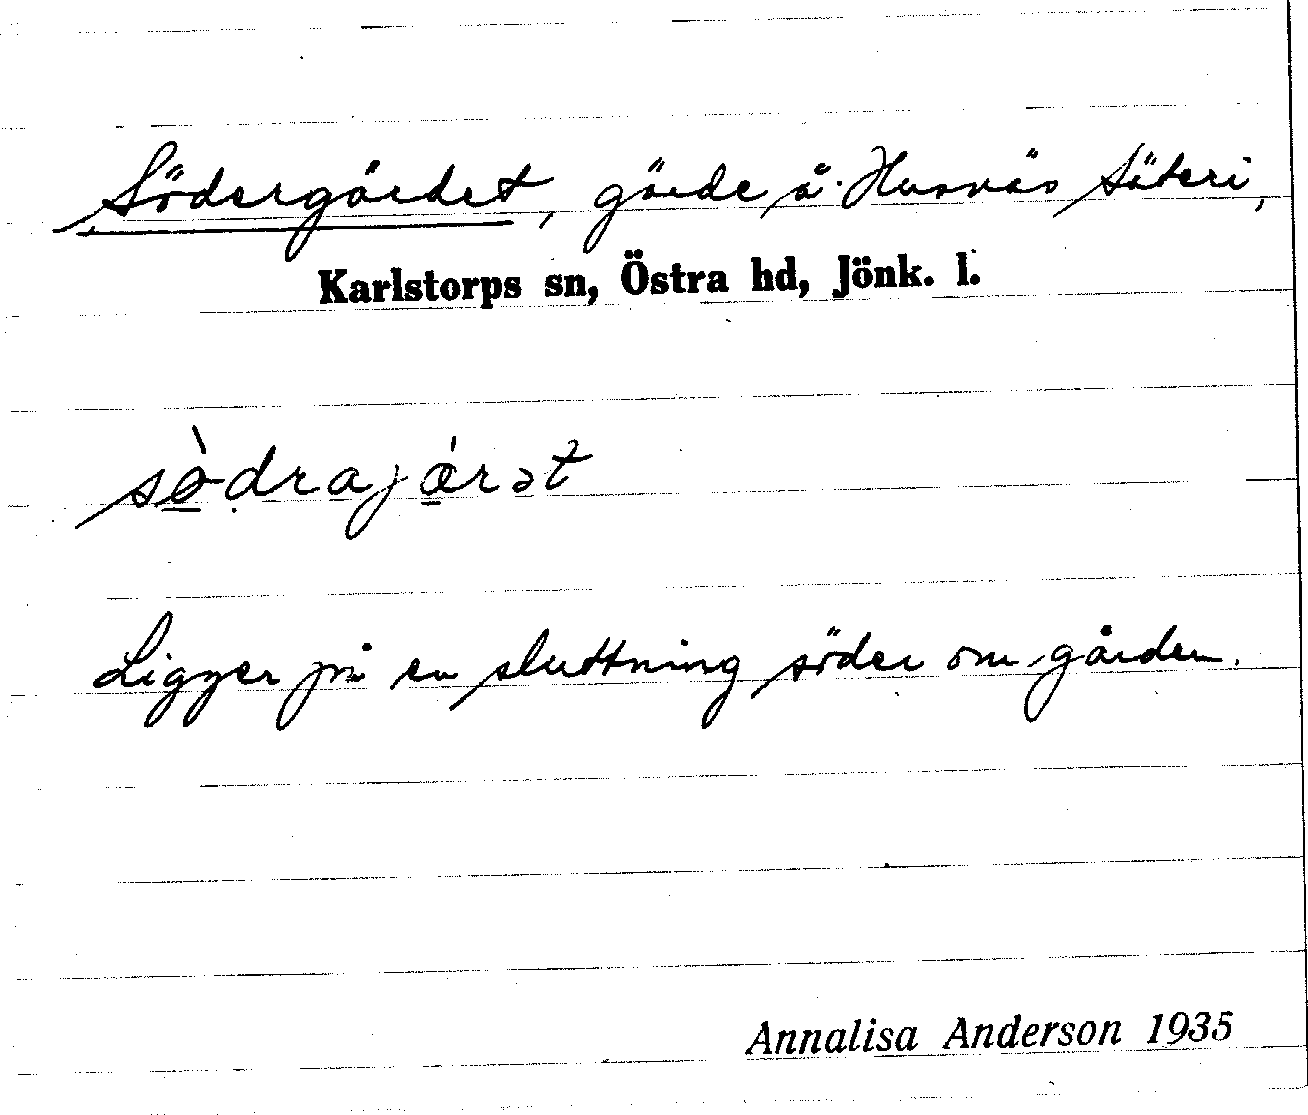 Södergärdet, gärde å Husnäs Säteri,
Karlstorps sn, Östra hd, Jönk. l.
sö̀drajǽrət
Ligger på en sluttning söder om gården.
Annalisa Anderson 1935